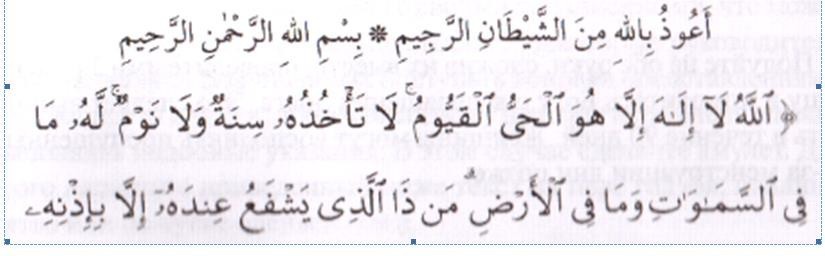 أَعُوذُ بِاللهِ مِنَ الشَّيْطَانِ الرَّجِيمِ * بِسْمِ اللهِ الرَّحْمٰنِ الرَّحِيمِ
﴿ ٱللَّهُ لَآ إِلَـٰهَ إِلَّا هُوَ ٱلْحَىُّ ٱلْقَيُّومُ ۚ لَا تَأْخُذُهُۥ سِنَةٌ وَلَا نَوْمٌ ۚ لَّهُۥ مَا
فِى ٱلسَّمَـٰوَٰتِ وَمَا فِى ٱلْأَرْضِ ۗ مَن ذَا ٱلَّذِى يَشْفَعُ عِندَهُۥٓ إِلَّا بِإِذْنِهِۦ